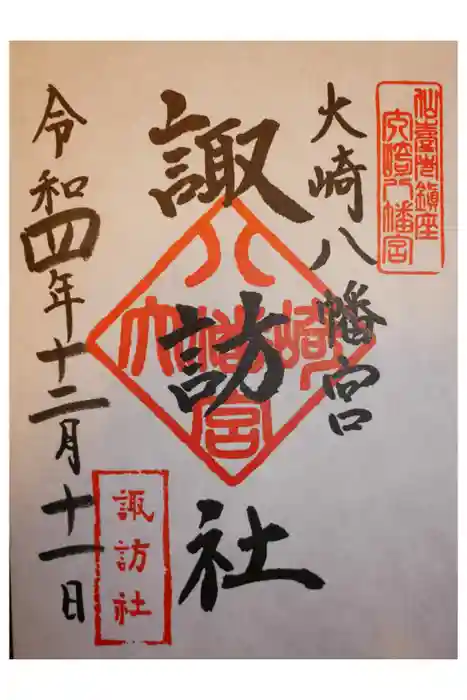 仙臺市鎮座
大崎八幡宮
大崎八幡宮
諏訪社
大崎八幡宮
諏訪社
令和四年十二月十一日